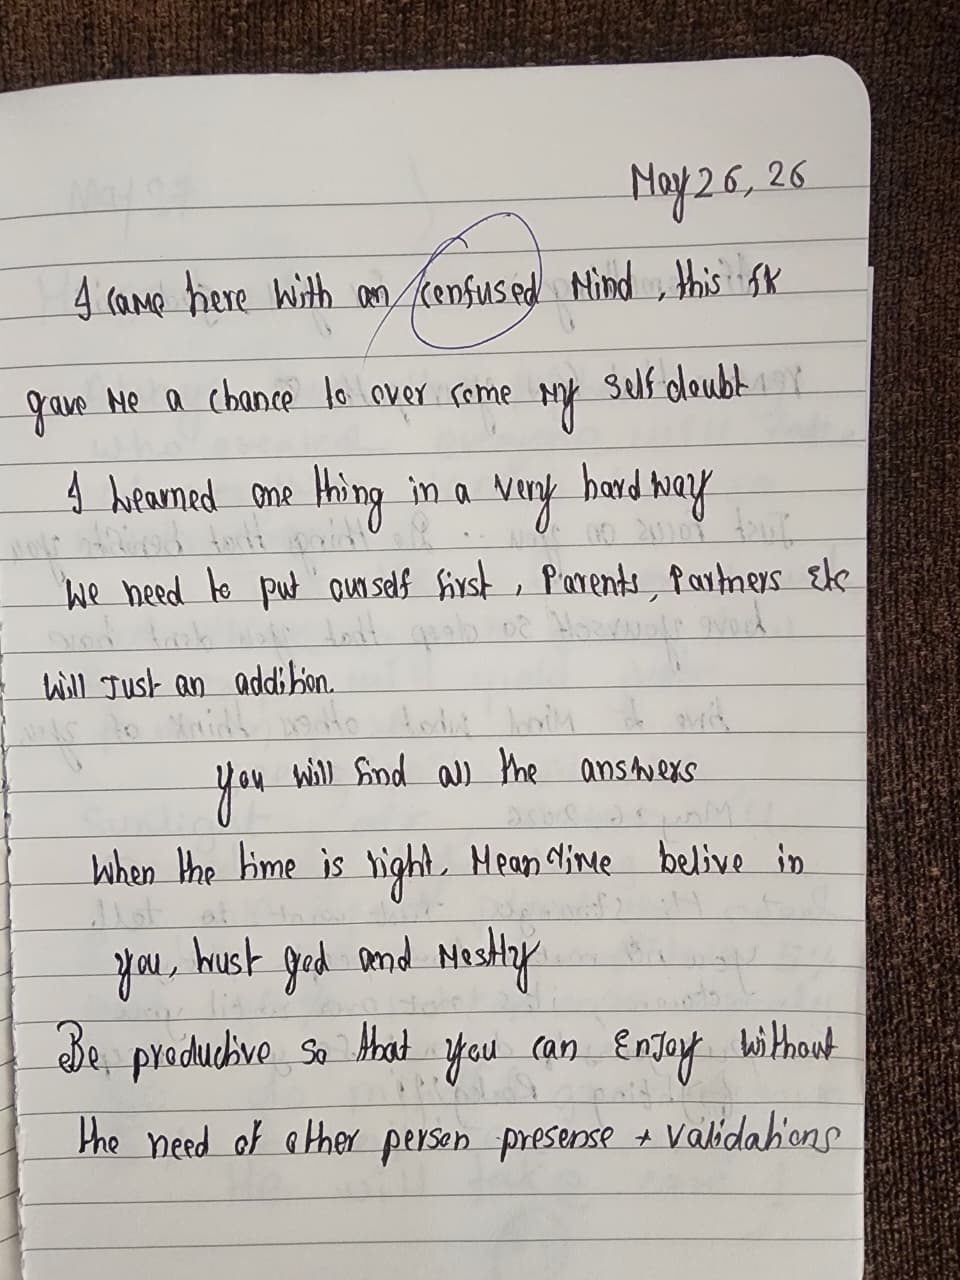 May 26, 26
I came here with an confused Mind, this fk
gave Me a chance to over come My self doubt
I Learned one thing in a very hard way
We need to put ourself first, Parents, Partners Etc
Will Just an addition.
you will find all the answers
When the time is right. Mean time belive in
you, trust god and Mostly
Be productive so that you can Enjoy Without
the need of other person presense + Validations